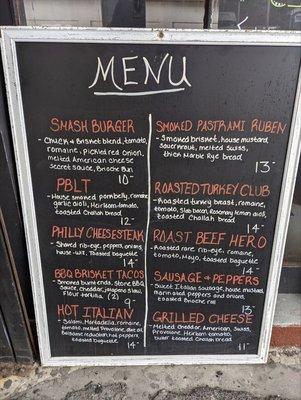 MENU
SMASH BURGER
Chuck & Brisket blend, tomato,
romaine, pickled red onion,
melted American cheese
secret sauce, Brioche Bun
10-
PBLT
House smoked porkbelly, romaine
garlic aioli, Heirloom tomato,
toasted Challah bread
12-
PHILLY CHEESESTEAK
Shaved rib-eye, peppers, onions,
house-wiz, Toasted Baguette
14-
BBQ BRISKET TACOS
Smoked burnt ends, Stone BBQ
Sauce, cheddar, jalapeno slaw,
Flour tortilla (2)
9-
HOT ITALIAN
Salami, Mortadella, romaine,
tomato, melted Provolone,
Balsamic reduction, hot peppers,
toasted Baguette
14-
SMOKED PASTRAMI RUBEN
Smoked brisket, house mustard,
sauerkraut, melted Swiss,
thick Marble Rye bread
13-
ROASTED TURKEY CLUB
Roasted turkey breast, romaine,
tomato, Slab bacon, Rosemary lemon aioli,
toasted Challah bread
14-
ROAST BEEF HERO
Roasted rare rib-eye, romaine,
tomato, Mayo, Toasted Baguette
14
SAUSAGE & PEPPERS
Sweet Italian Sausage, house
marinated peppers and onions,
toasted Brioche roll
13-
GRILLED CHEESE
Melted Cheddar, American, Swiss,
Provolone, Heirloom tomato,
butter toasted Challah bread
11-